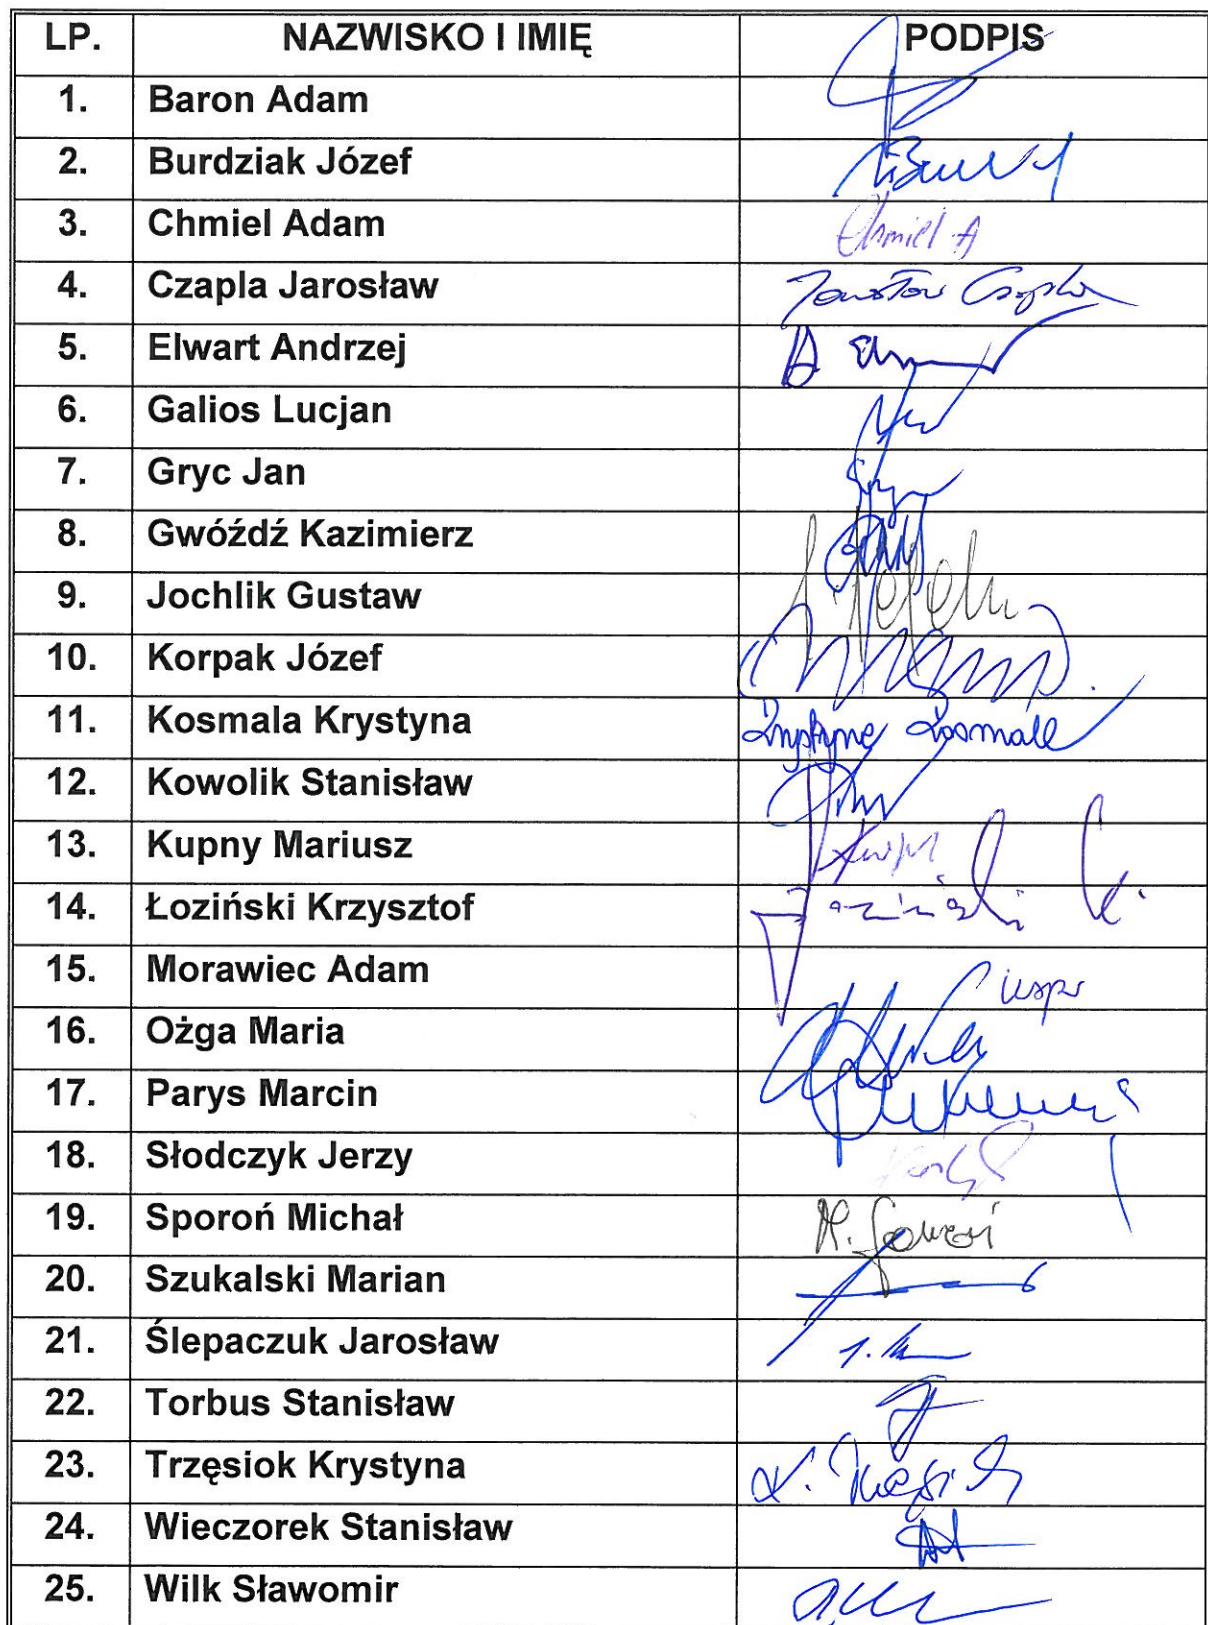 LP. NAZWISKO I IMIĘ PODPIS
1. Baron Adam
2. Burdziak Józef
3. Chmiel Adam Chmiel A
4. Czapla Jarosław Jarosław Czapla
5. Elwart Andrzej
6. Galios Lucjan
7. Gryc Jan
8. Gwóźdź Kazimierz
9. Jochlik Gustaw
10. Korpak Józef
11. Kosmala Krystyna Krystyna Kosmala
12. Kowolik Stanisław
13. Kupny Mariusz
14. Łoziński Krzysztof Łoziński K.
15. Morawiec Adam
16. Ożga Maria
17. Parys Marcin
18. Słodczyk Jerzy
19. Sporoń Michał M. Sporoń
20. Szukalski Marian
21. Ślepaczuk Jarosław
22. Torbus Stanisław
23. Trzęsiok Krystyna K. Trzęsiok
24. Wieczorek Stanisław
25. Wilk Sławomir